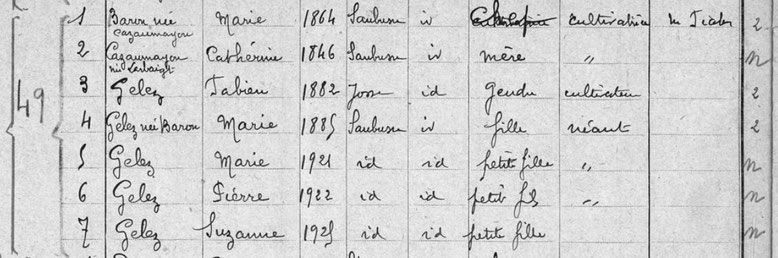 1 Baron née Cazaumayou Marie 1864 Saubusse id Chef cultivatrice 2
2 Cazaumayou née Marie Cathérine 1846 Saubusse id mère " n
3 Gelez Fabien 1882 Josse id Gendre cultivateur 2
4 Gelez née Baron Marie 1885 Saubusse id fille néant 2
49
5 Gelez Marie 1921 id id petite fille " n
6 Gelez Pierre 1922 id id petit fils " n
7 Gelez Suzanne 1925 id id petite fille n